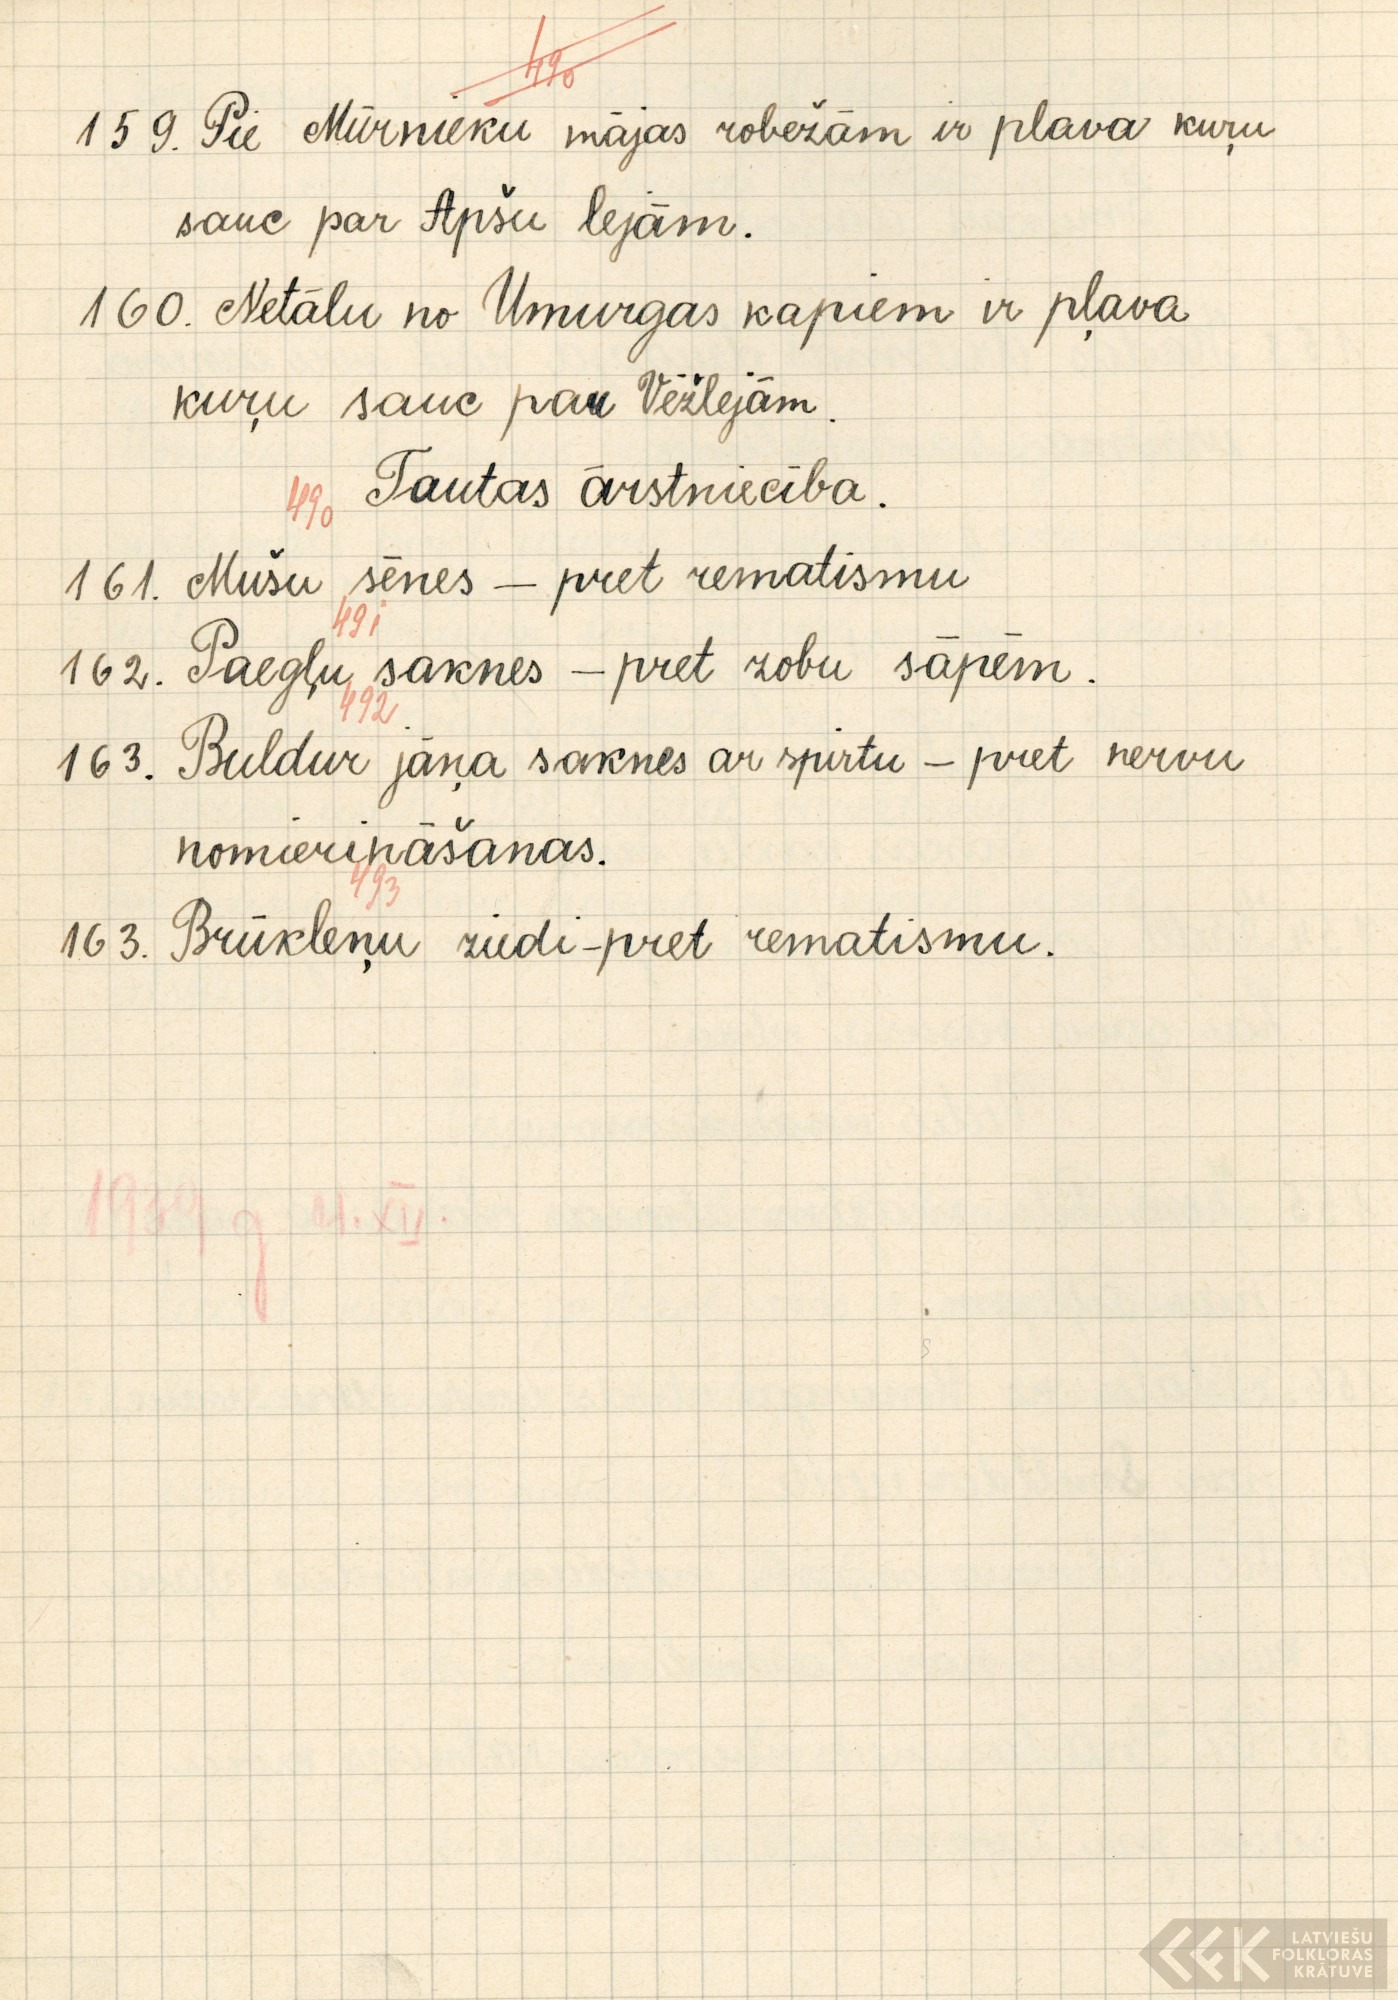 490
159. Pie Mūrnieku mājas robežām ir plava kuŗu
sauc par Apšu lejām.
160. Netālu no Umurgas kapiem ir pļava
kuŗu sauc par Vēžlejām.
490 Tautas ārstniecība.
161. Mušu sēnes – pret rematismu
491
162. Paegļu saknes – pret zobu sāpēm.
492
163. Buldur jāņa saknes ar spirtu – pret nervu
nomierināšanas.
493
163. Brūkleņu ziedi – pret rematismu.
1939 g XII.
LATVIEŠU
FOLKLORAS
KRĀTUVE